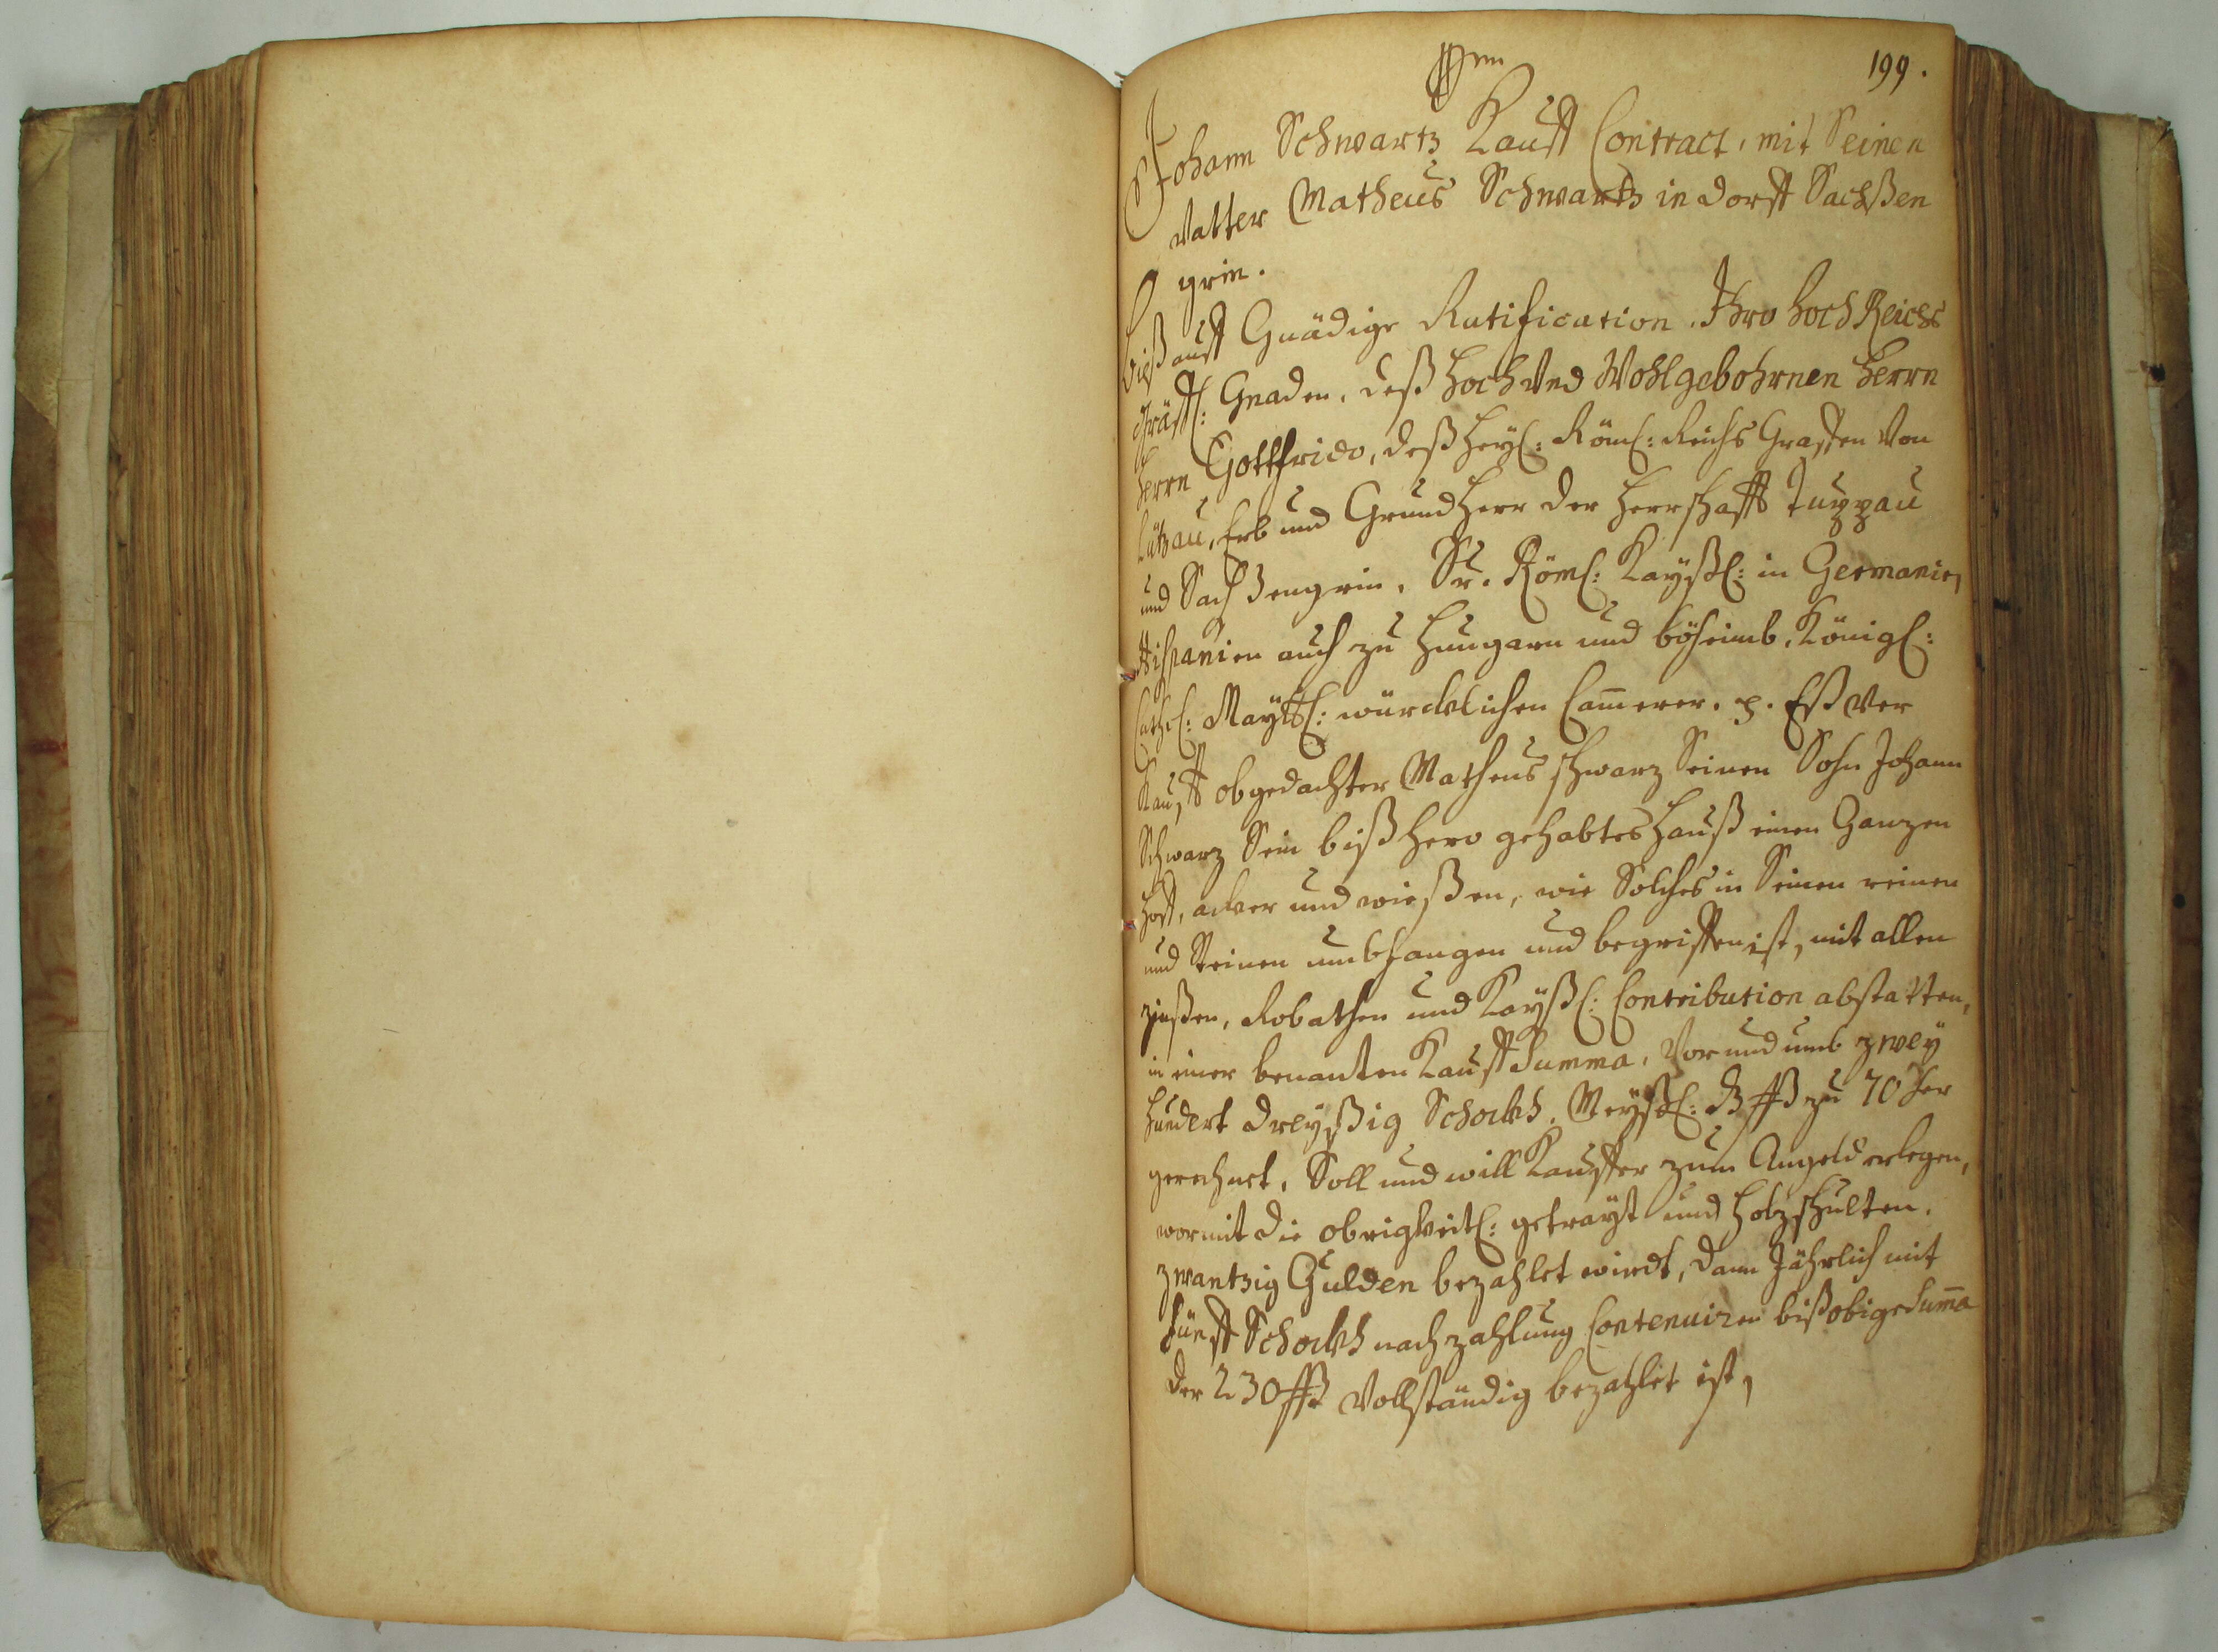 199.
Johann Schwartz Kauff Contract, mit Seinen
Vatter Matheus Schwartz in dorff Sachßen
grin.
Bieß auff Gnädige Ratification. Ihro Hoch Reichs
Gräffl: Gnaden, deß Hoch Und Wohlgebohrnen Herrn
Herrn Gottfriedo, deß Heyl: Röml: Reichs Graffen Von
Lützau, Erb und Grundherr der Herrschafft Duppau
und Sachßengrin, Sr. Röml: Kayßl: in Germanien,
Hispanien auch zu Hungarn und böheimb, Königl:
Cathl: Maytl: würcklichen Cammerer. p. Eß Ver
Kaufft obgedachter Matheus schwarz Seinen Sohn Johann
Schwarz Sein bißhero gehabtes Hauß einen Ganzen
Hoff, acker und wießen, wie Solches in Seinen reinen
und Steinen umbfangen und begriffen ist, mit allen
zinßen, Robathen und Kayßl: Contribution abstatten,
in einer benanten Kauff Summa, Vor und umb zwey
Hundert dreyßig Schockh. Meyßl: ßß zu 70 xer
gerechnet, Soll und will Kauffer zum Angeld erlegen,
wormit die obrigkeitl: getrayt und Holzschulten.
zwantzig Gulden bezahlet wirdt, dann Jährlich mit
fünff Schockh nachzahlung Contenuiren biß obige Summa
der 230 ßß Vollständig bezahlet ist,